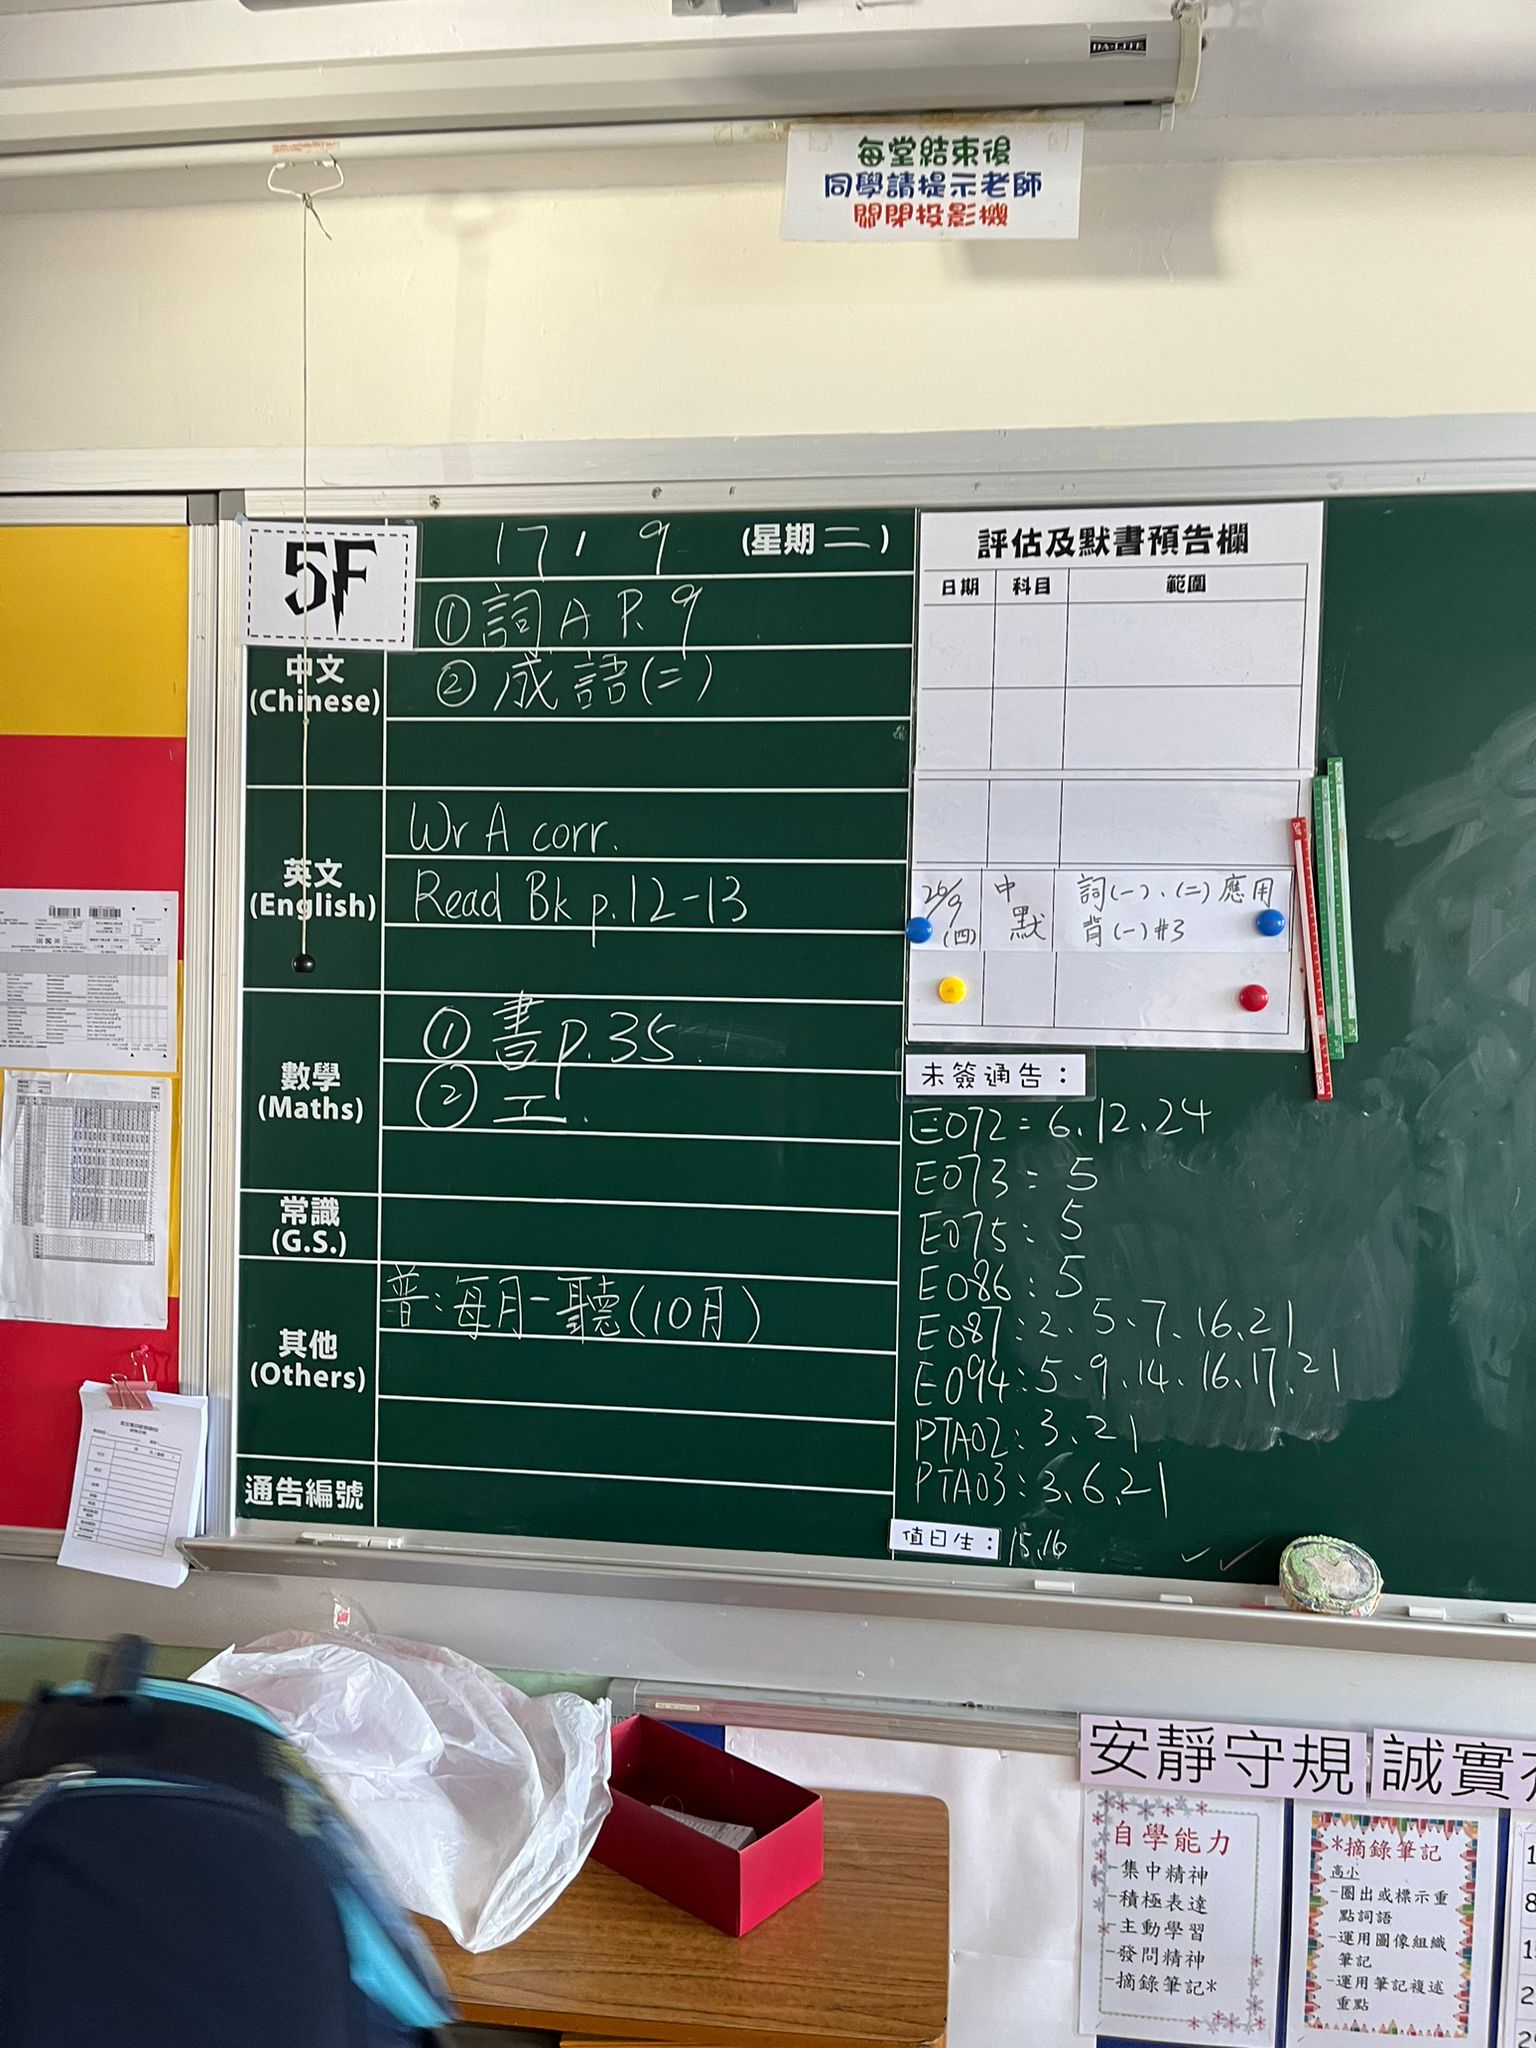 DA-LITE
每堂結束後
同學請提示老師
關閉投影機
5F
17 / 9 (星期二)
中文
(Chinese)
①詞A P.9
②成語(二)
英文
(English)
Wr A corr.
Read Bk p.12-13
數學
(Maths)
①書p.35
②工.
常識
(G.S.)
其他
(Others)
普:每月一聽(10月)
通告編號
評估及默書預告欄
日期 科目 範圍
26/9 (四) 中默 詞(一)、(二)應用
背(一)#3
未簽通告：
E072=6、12、24
E073:5
E075:5
E086:5
E087:2、5、7、16、21
E094:5、9、14、16、17、21
PTA02:3、21
PTA03:3、6、21
值日生： 15、16
安靜守規
誠實
自學能力
-集中精神
-積極表達
-主動學習
-發問精神
-摘錄筆記*
*摘錄筆記
高小
-圈出或標示重
點詞語
-運用圖像組織
筆記
-運用筆記複述
重點